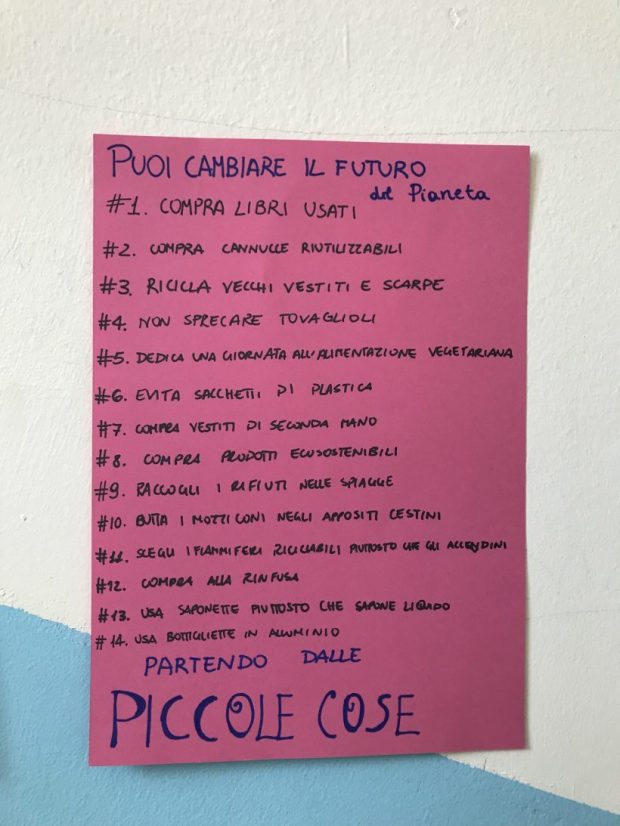 PUOI CAMBIARE IL FUTURO
del Pianeta
#1. COMPRA LIBRI USATI
#2. COMPRA CANNUCCE RIUTILIZZABILI
#3. RICICLA VECCHI VESTITI E SCARPE
#4. NON SPRECARE TOVAGLIOLI
#5. DEDICA UNA GIORNATA ALL'ALIMENTAZIONE VEGETARIANA
#6. EVITA SACCHETTI DI PLASTICA
#7. COMPRA VESTITI DI SECONDA MANO
#8. COMPRA PRODOTTI ECOSOSTENIBILI
#9. RACCOGLI I RIFIUTI NELLE SPIAGGE
#10. BUTTA I MOZZICONI NEGLI APPOSITI CESTINI
#11. SCEGLI I FIAMMIFERI RICICLABILI PIUTTOSTO CHE GLI ACCENDINI
#12. COMPRA ALLA RINFUSA
#13. USA SAPONETTE PIUTTOSTO CHE SAPONE LIQUIDO
#14. USA BOTTIGLIETTE IN ALLUMINIO
PARTENDO DALLE
PICCOLE COSE